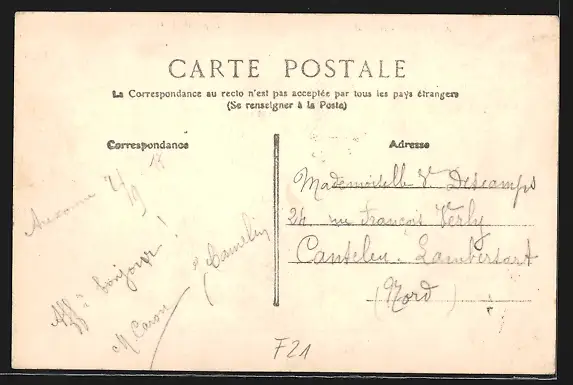 CARTE POSTALE
La Correspondance au recto n'est pas acceptée par tous les pays étrangers
(Se renseigner à la Poste)
Correspondance
Adresse
bonjour !
Mademoiselle V. Descamps
24 rue François Verly
Canteleu. Lambersart
(Nord)
F21